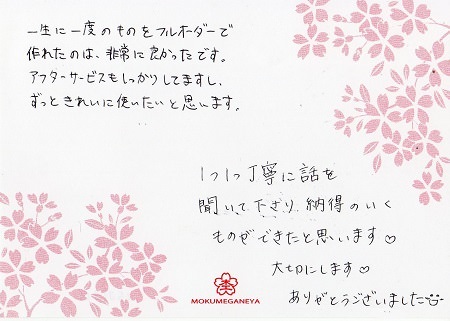 一生に一度のものをフルオーダーで
作れたのは、非常に良かったです。
アフターサービスもしっかりしてますし、
ずっときれいに使いたいと思います。
1つ1つ丁寧に話を
聞いて下さり 納得のいく
ものができたと思います♡
大切にします♡
ありがとうございました
MOKUMEGANEYA